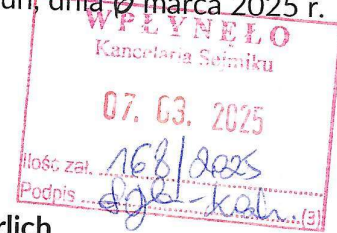 uń, dnia 6 marca 2025 r.
WPŁYNĘŁO
Kancelaria Sejmiku
07. 03. 2025
Ilość zał. 168/2025
Podpis ........(3)
rlich